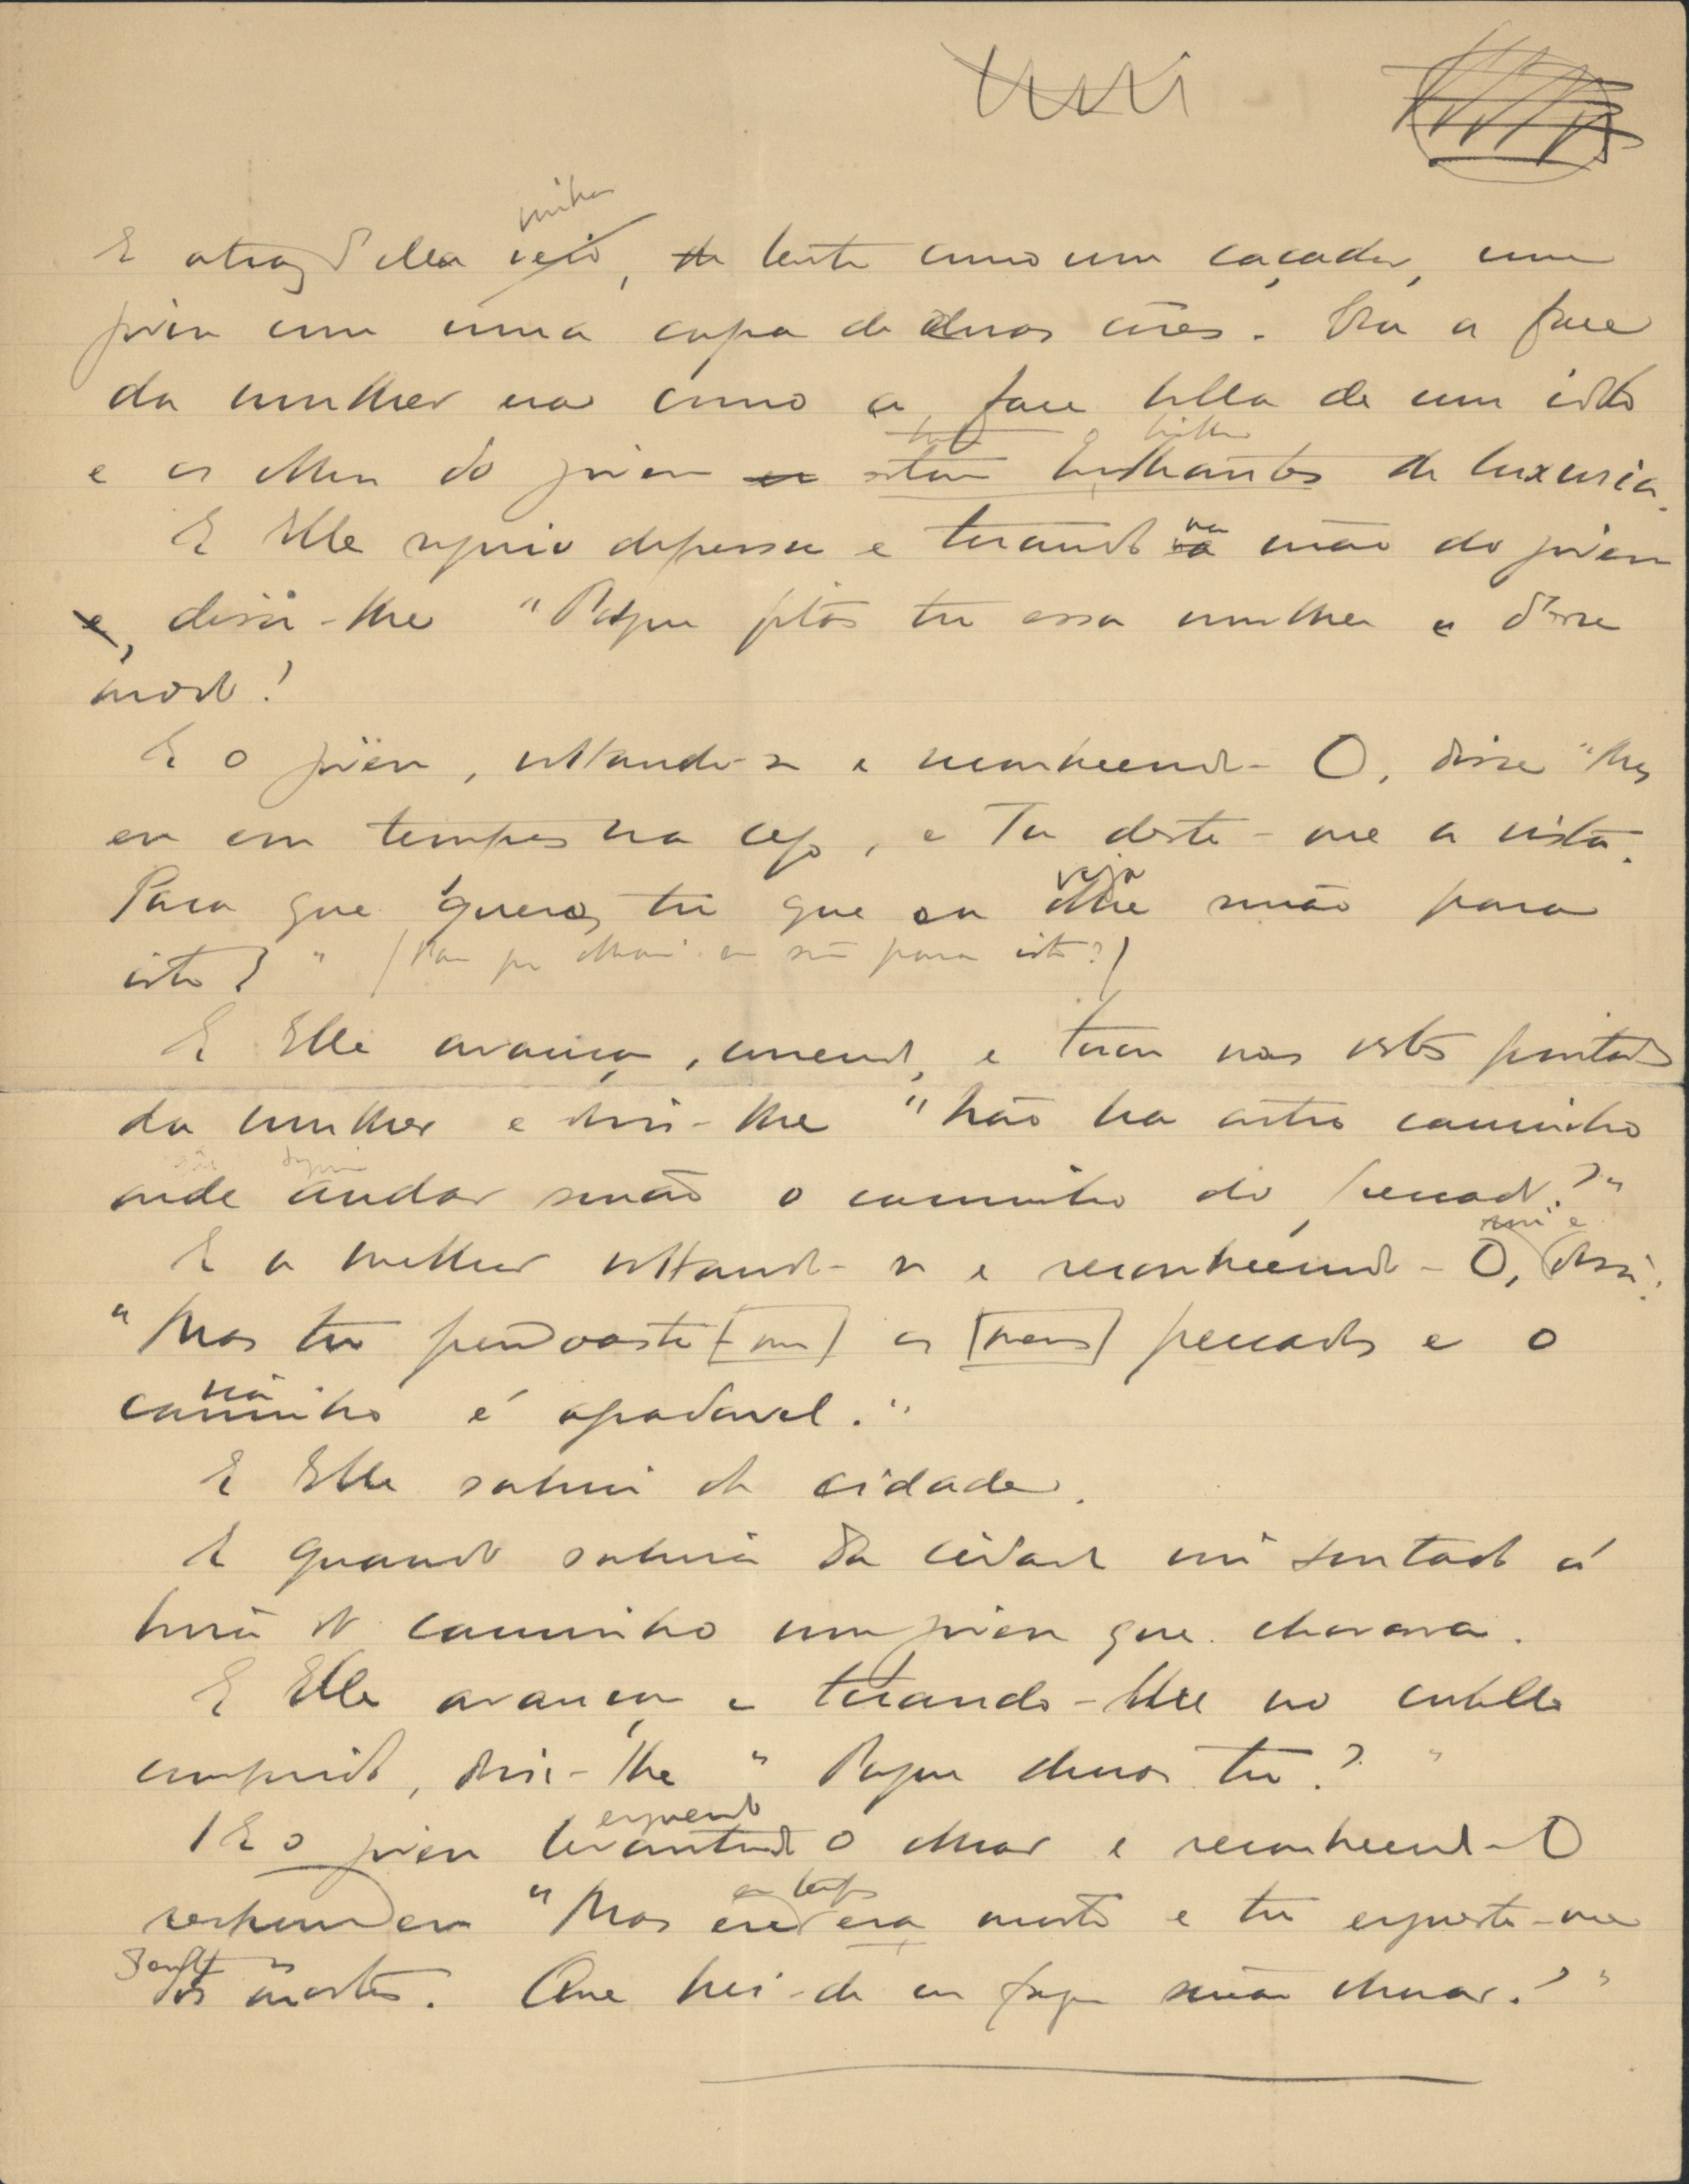 vinha
E atraz d'ella veio, lento como um caçador, um
joven com uma capa de duas côres. Ora a face
da mulher era como a face bella de um idolo
o brilho
e os olhos do joven estavam brilhantes de luxuria.
E Elle seguiu depressa e tocando na mão do joven
, disse-lhe "Porque fitas tu essa mulher e d'esse
modo?
E o joven, voltando-se e reconhecendo-O, disse "Mas
eu em tempos era cego, e Tu deste-me a vista.
veja
Para que queres tu que eu olhe senão para
isto?" (Para que olharei eu senão para isto?)
E Elle avançou, correndo, e tocou nas vestes pintadas
da mulher e disse-lhe "Não ha outro caminho
onde andar senão o caminho do peccado?"
riu e
E a mulher voltando-se e reconhecendo-O, disse:
"Mas tu perdoaste[-me] os [meus] peccados e o
caminho é agradavel."
E Elle sahiu da cidade.
E quando sahia da cidade viu sentado á
beira do caminho um joven que chorava.
E Elle avançou e tocando-lhe no cabello
comprido, disse-lhe "Porque choras tu?"
erguendo
E o joven levantando o olhar e reconhecendo-O
em tempos
respondeu "Mas eu era morto e tu ergueste-me
d'entre os
dos mortos. Que hei-de eu fazer senão chorar?"